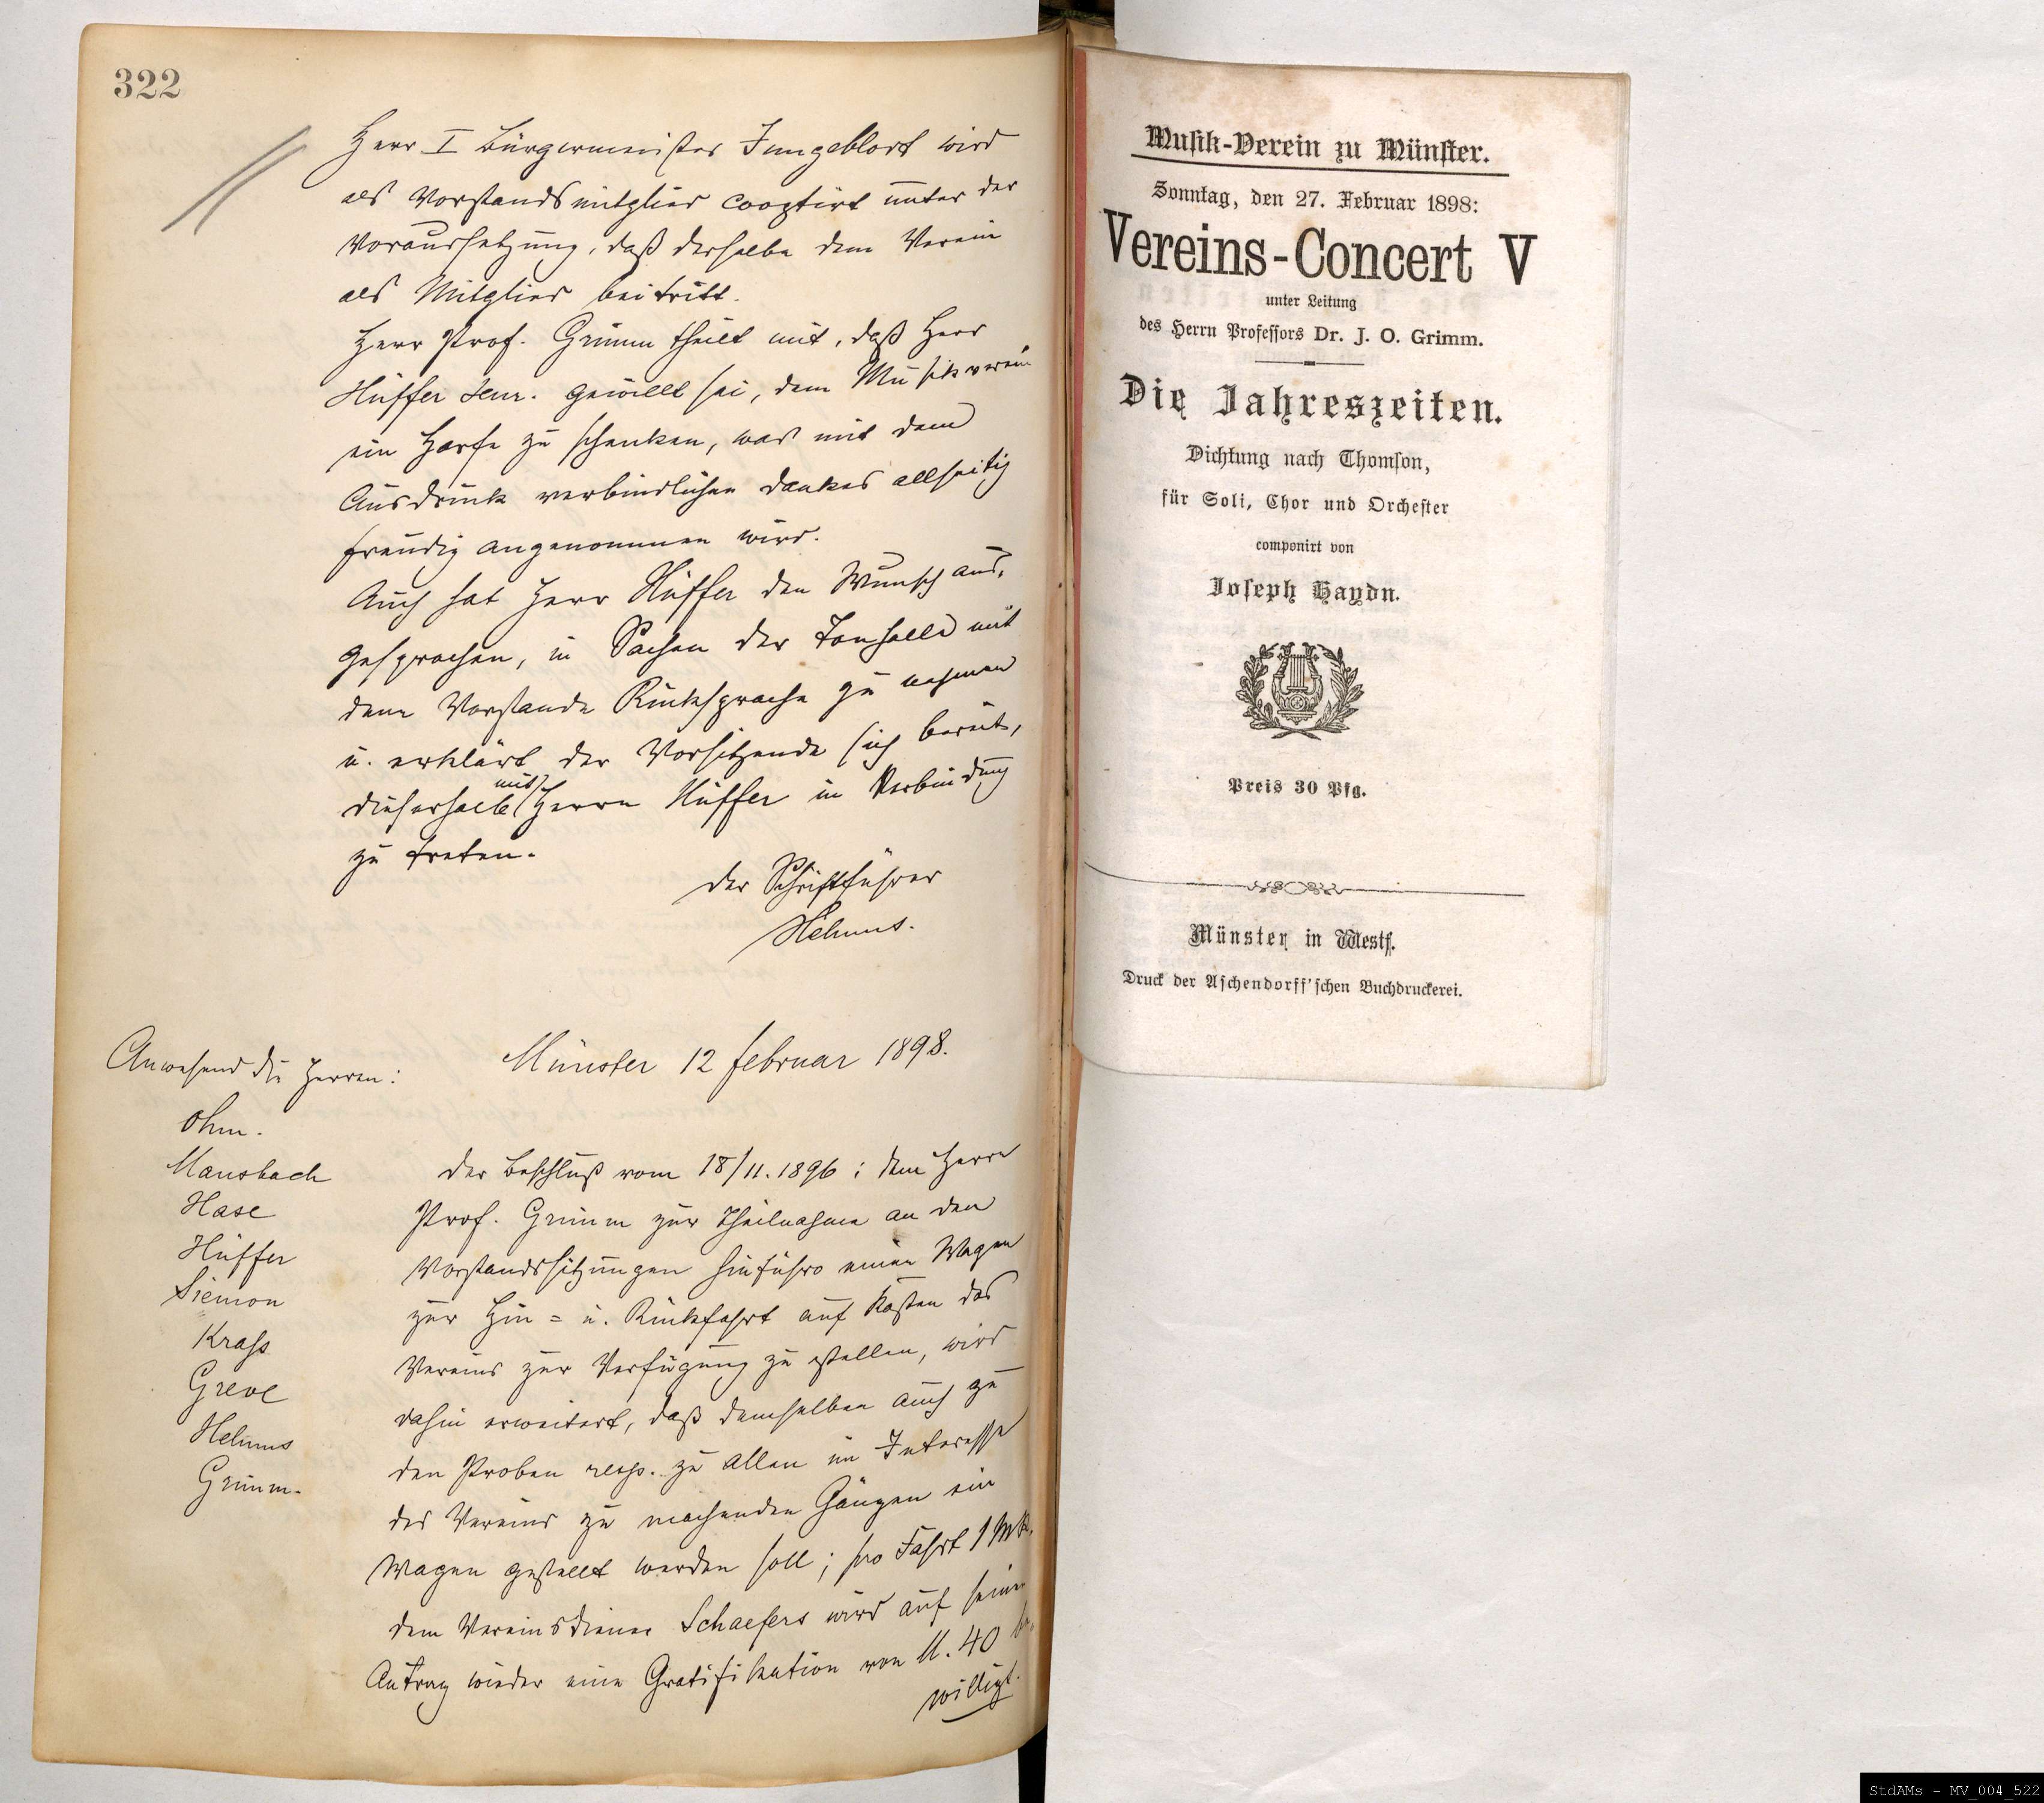 322
Herr I Bürgermeister Jungeblodt wird
als Vorstandsmitglied cooptirt unter der
Voraussetzung, daß derselbe dem Verein
als Mitglied beitritt.
Herr Prof. Grimm theilt mit, daß Herr
Hüffer senr. gewillt sei, dem Musikverein
ein Harfe zu schenken, was mit dem
Ausdruck verbindlichen Dankes allseitig
freudig angenommen wird.
Auch hat Herr Hüffer den Wunsch aus,
gesprochen, in Sachen der Tonhalle mit
dem Vorstande Rücksprache zu nehmen
u. erklärt der Vorsitzende sich bereit,
dieserhalb mit Herrn Hüffer in Verbindung
zu treten.
der Schriftführer
Helmus.
Münster 12 februar 1898.
Anwesend die Herren:
Ohm.
Mansbach
Hase
Hüffer
Siemon
Krass
Greve
Helmus
Grimm.
Der Beschluß vom 18/11. 1896: dem Herrn
Prof. Grimm zur Theilnahme an den
Vorstandssitzungen hinführo einen Wagen
zur Hin= u. Rückfahrt auf Kosten des
Vereins zur Verfügung zu stellen, wird
dahin erweitert, daß demselben auch zu
den Proben resp. zu allen im Interesse
des Vereins zu machenden Gängen ein
Wagen gestellt werden soll; pro Fahrt 1 Mk.
dem Vereinsdiener Schaefers wird auf seinen
Antrag wieder eine Gratifikation von M. 40 be,
willigt.
Musik-Verein zu Münster.
Sonntag, den 27. Februar 1898:
Vereins-Concert V
unter Leitung
des Herrn Professors Dr. J. O. Grimm.
Die Jahreszeiten.
Dichtung nach Thomson,
für Soli, Chor und Orchester
componirt von
Joseph Haydn.
Preis 30 Pfg.
Münster in Westf.
Druck der Aschendorff'schen Buchdruckerei.
StdAMs - MV_004_522